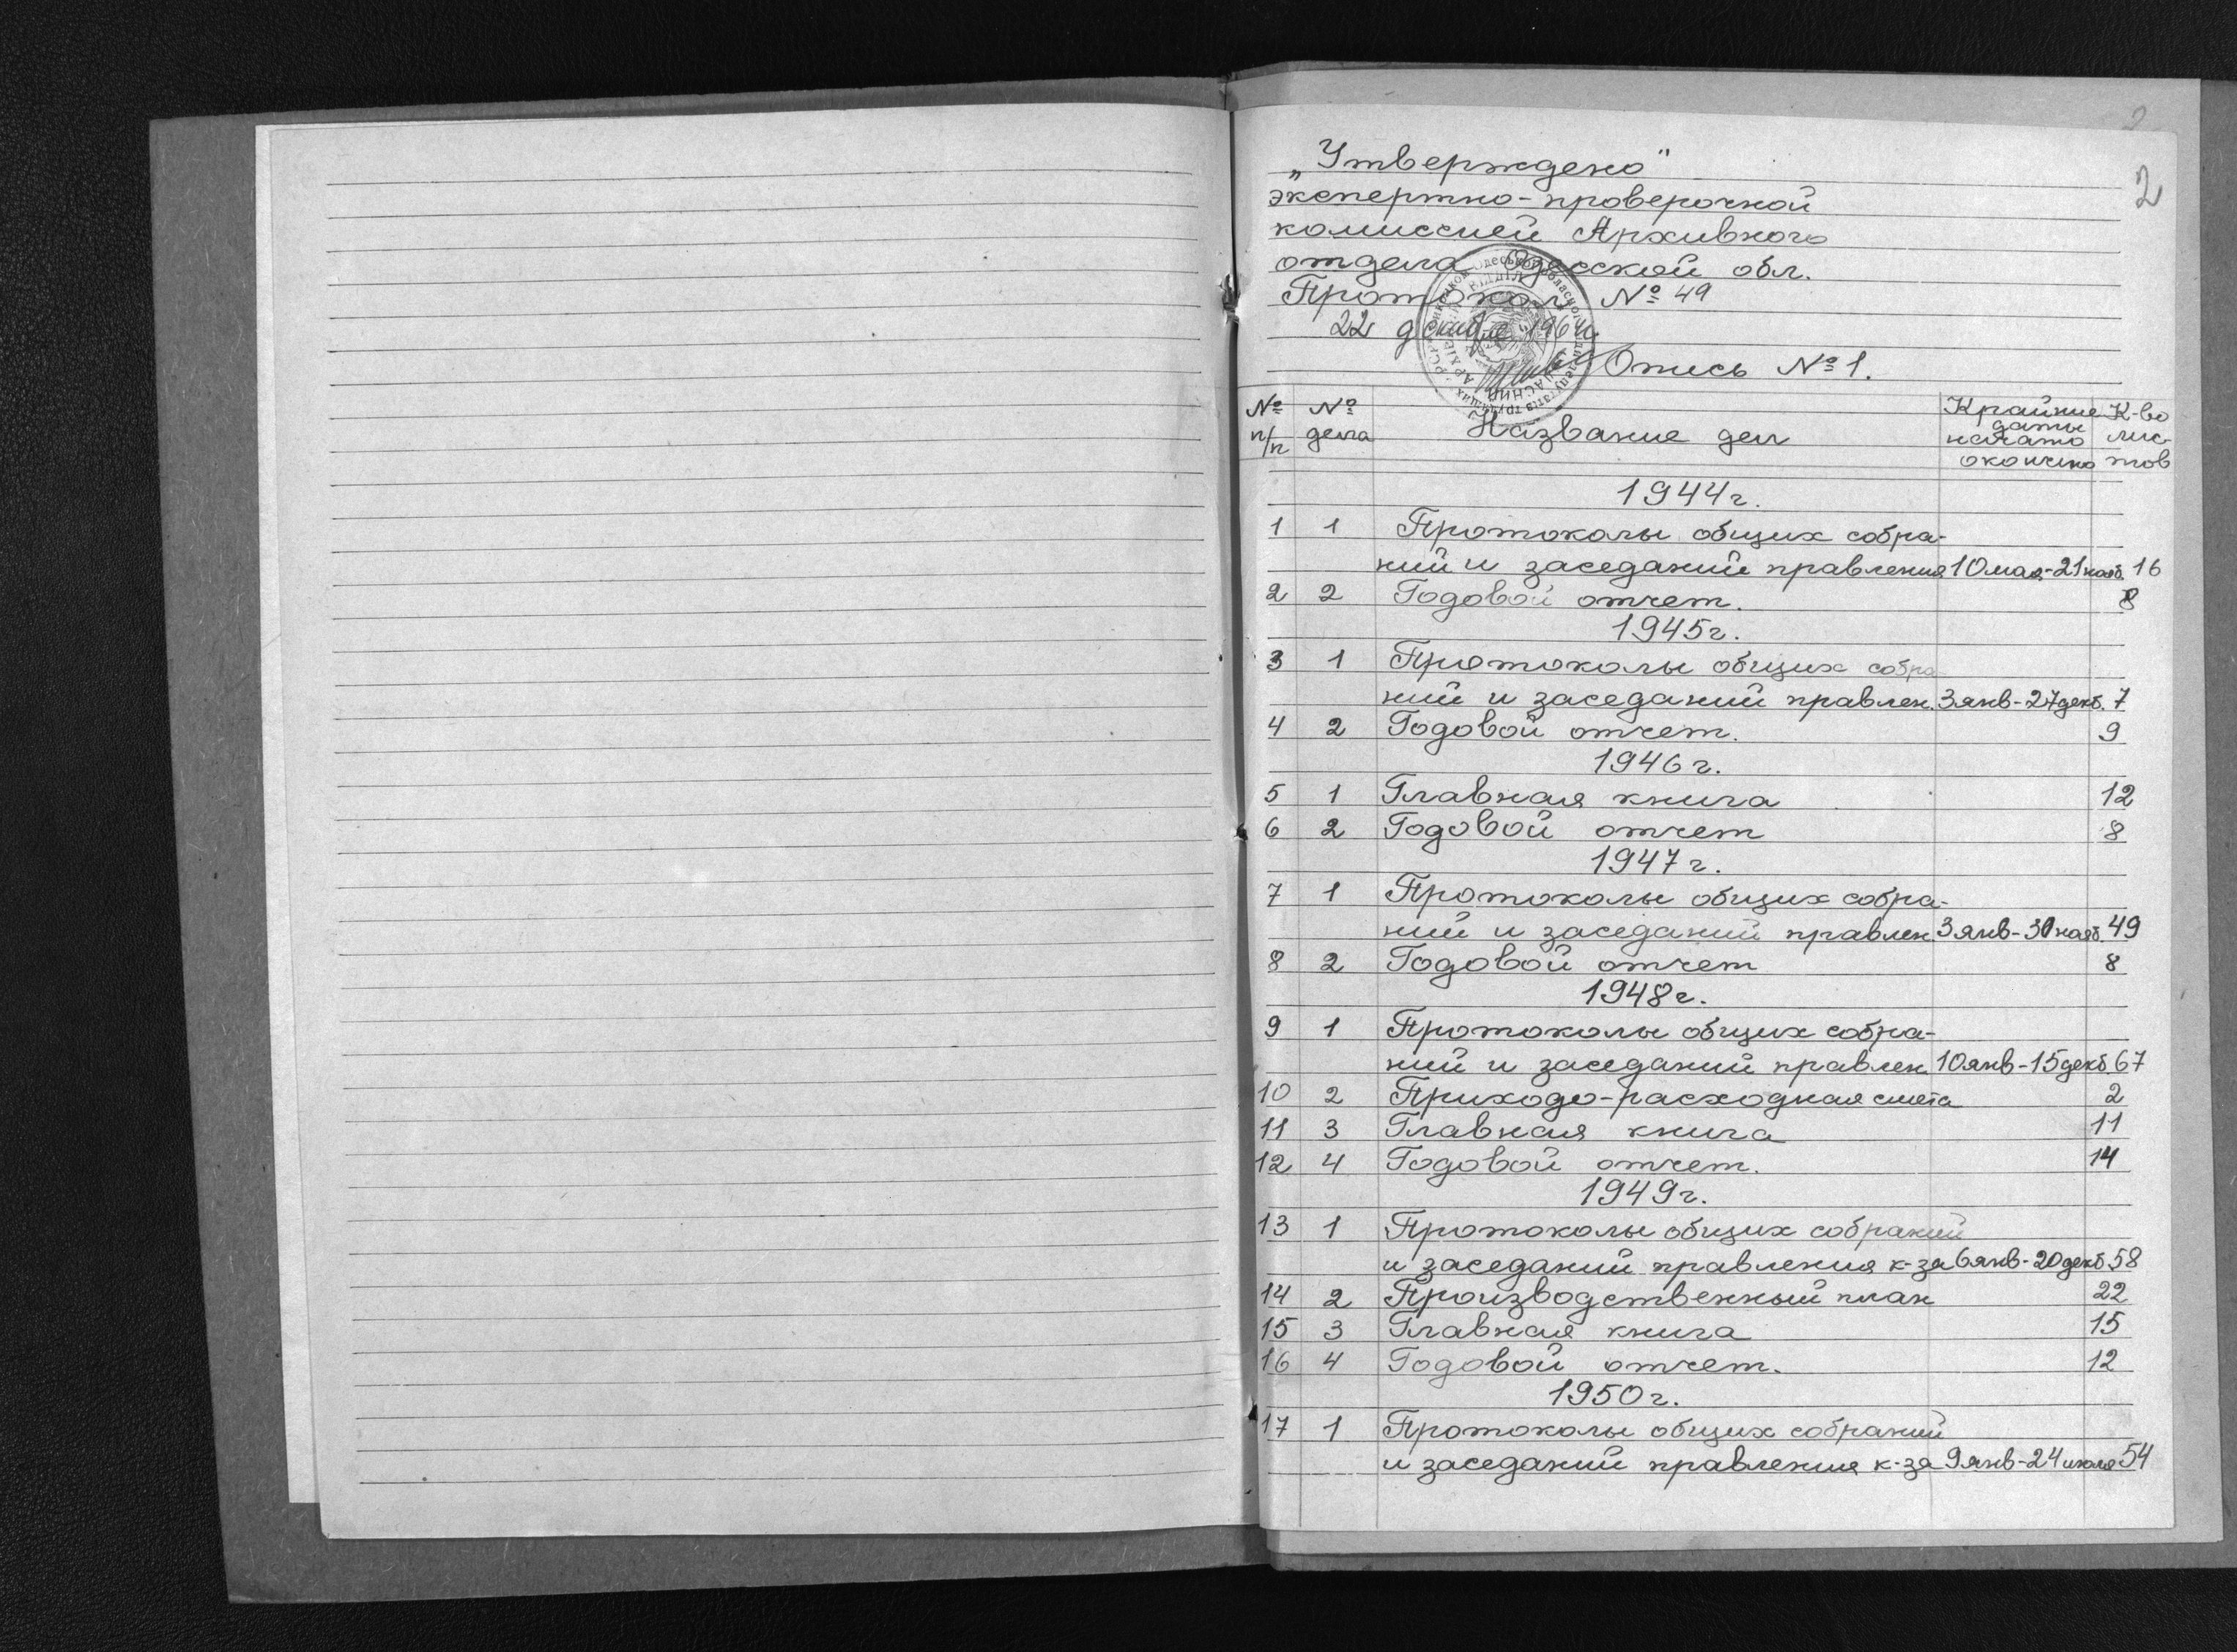 2
„Утверждено"
экспертно-проверочной
комиссией Архивного
отдела Одесской обл.
Протокол № 49
22 декабря 1964
Опись № 1.
№ п/п № дела Название дел Крайние даты начато окончено К-во листов
1944г.
1 1 Протоколы общих собра-
ний и заседаний правления 10мая-21нояб. 16
2 2 Годовой отчет. 8
1945г.
3 1 Протоколы общих собра
ний и заседаний правлен. 3янв-27декб. 7
4 2 Годовой отчет. 9
1946г.
5 1 Главная книга 12
6 2 Годовой отчет 8
1947г.
7 1 Протоколы общих собра-
ний и заседаний правлен. 3янв-30нояб. 49
8 2 Годовой отчет 8
1948г.
9 1 Протоколы общих собра-
ний и заседаний правлен. 10янв-15декб. 67
10 2 Приходо-расходная смета 2
11 3 Главная книга 11
12 4 Годовой отчет. 14
1949г.
13 1 Протоколы общих собраний
и заседаний правления к-за 6янв-20декб 58
14 2 Производственный план 22
15 3 Главная книга 15
16 4 Годовой отчет. 12
1950г.
17 1 Протоколы общих собраний
и заседаний правления к-за 9янв-24июля 54